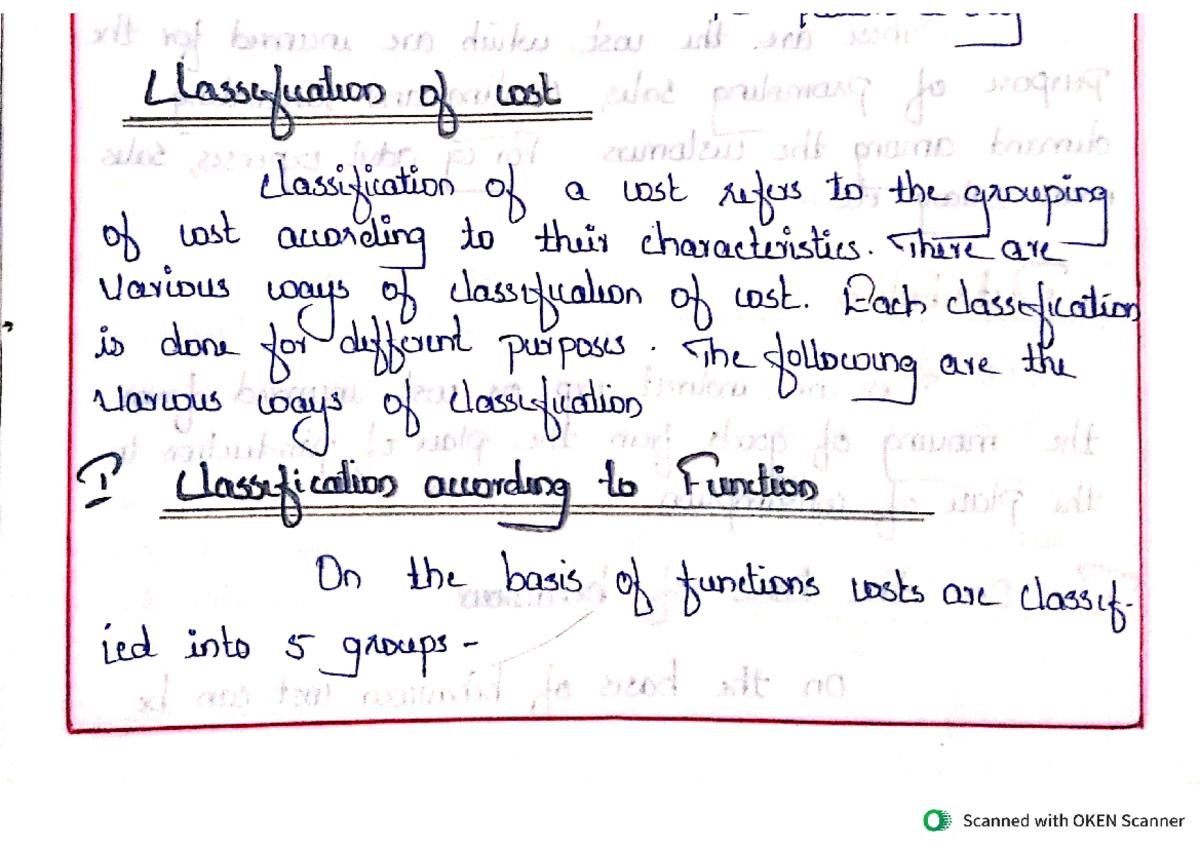 Classification of cost
Classification of a cost refers to the grouping
of cost according to their characteristics. There are
Various ways of classification of cost. Each classification
is done for different purposes. The following are the
various ways of classification
I Classification according to Function
On the basis of functions costs are classif-
ied into 5 groups -
Scanned with OKEN Scanner